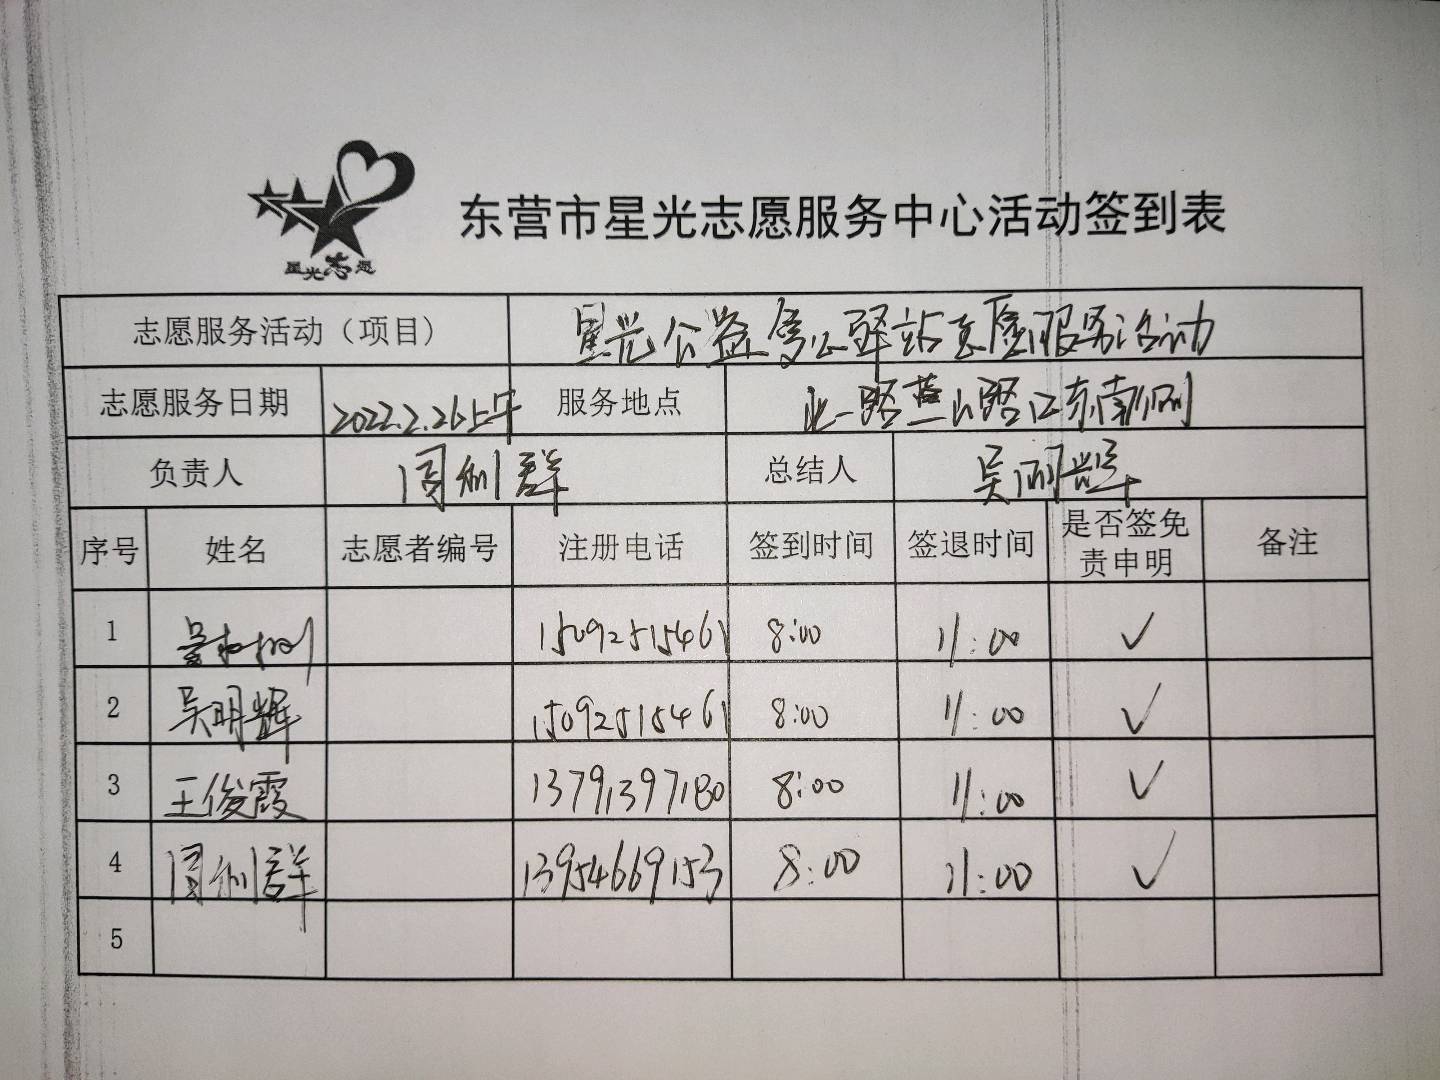 星光志愿
东营市星光志愿服务中心活动签到表
志愿服务活动（项目） 星光公益 驿站志愿服务活动
志愿服务日期 2022.2.26上午 服务地点 北一路燕山路口东南侧
负责人 周利群 总结人 吴明辉
序号 姓名 志愿者编号 注册电话 签到时间 签退时间 是否签免责申明 备注
1 15092515461 8:00 11:00 ✓
2 吴明辉 15092515461 8:00 11:00 ✓
3 王俊霞 13791397180 8:00 11:00 ✓
4 周利群 13954669153 8:00 11:00 ✓
5